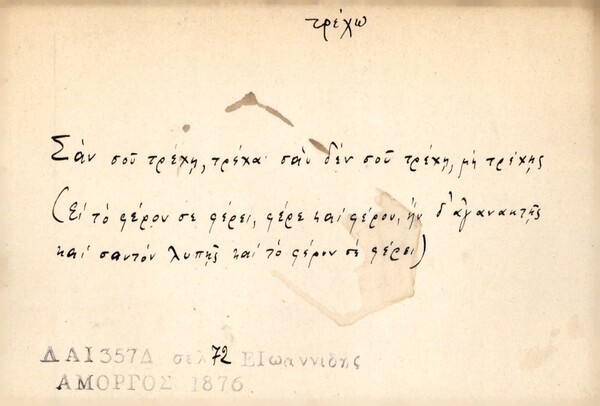 τρέχω
Σὰν σοῦ τρέχῃ, τρέχα· σὰν δέν σοῦ τρέχῃ, μὴ τρέχῃς
(Εἰ τὸ φέρον σε φέρει, φέρε καὶ φέρου, ἢν δ' ἀγανακτῇς
καὶ σαυτόν λυπῇς καὶ τὸ φέρον σε φέρει)
ΔΑΙ 357Δ σελ 72 ΕΙωαννιδης
ΑΜΟΡΓΟΣ 1876